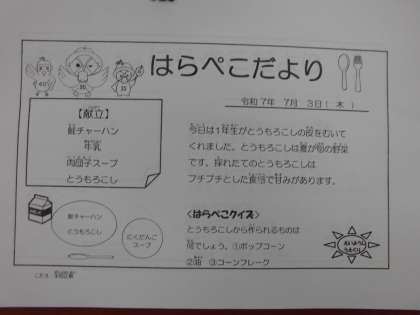 はらぺこだより
令和7年 7月 3日( 木 )
【献立】
鮭チャーハン
牛乳
肉団子スープ
とうもろこし
今日は1年生がとうもろこしの皮をむいて
くれました。とうもろこしは夏が旬の野菜
です。採れたてのとうもろこしは
プチプチとした食感で甘みがあります。
鮭チャーハン
とうもろこし
にくだんご
スープ
<はらぺこクイズ>
とうもろこしから作られるものは
何でしょう。①ポップコーン
②油 ③コーンフレーク